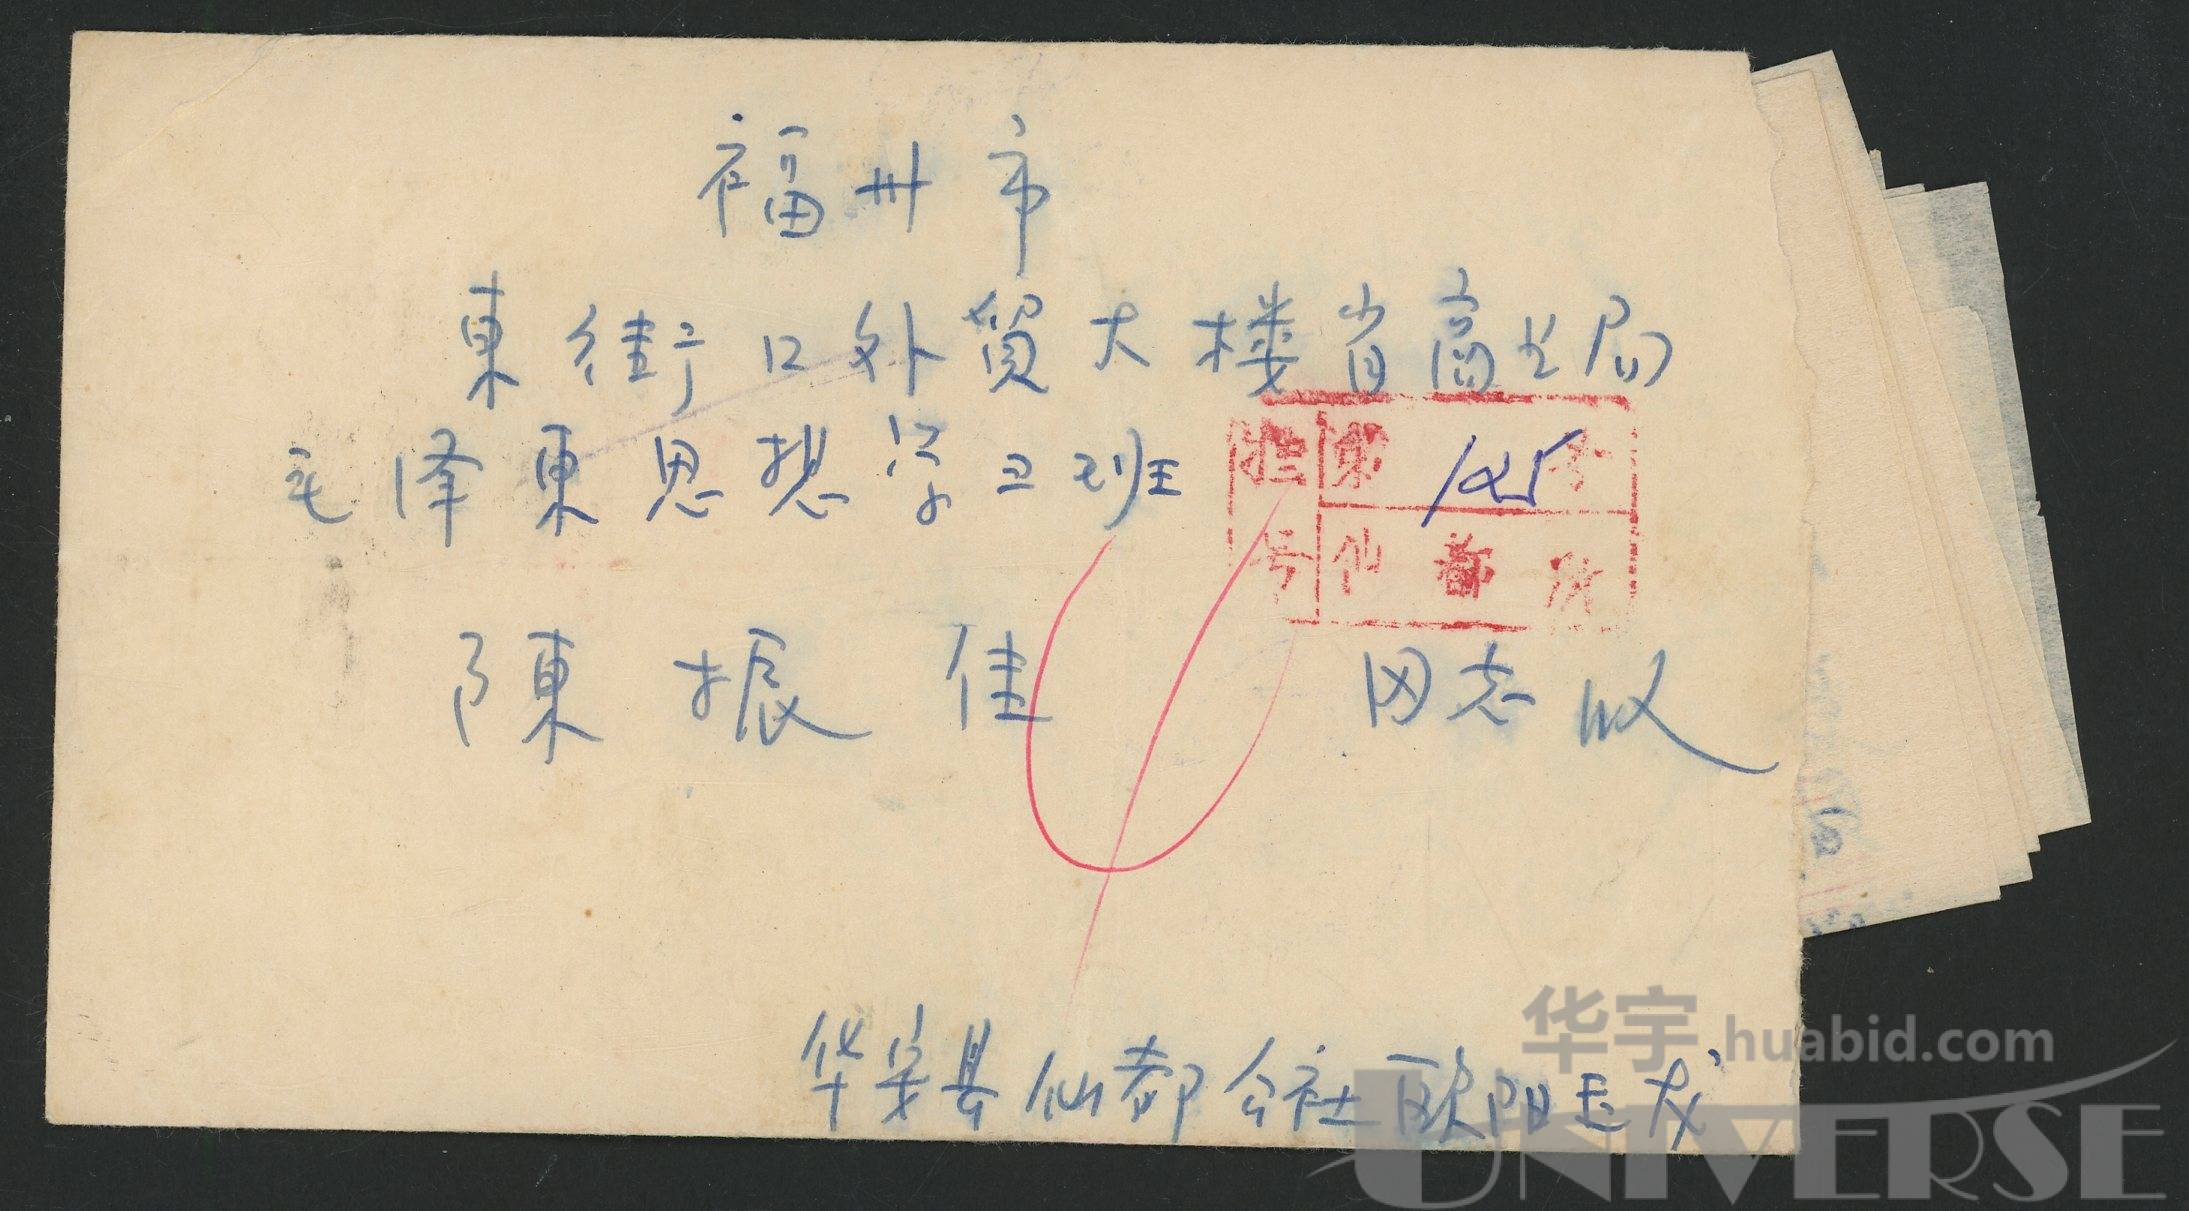 福州市
東街口外貿大楼省商业局
毛泽東思想学习班
挂号
第 125 号
仙都
陳振佳 同志收
华安县仙都公社欧阳玉龙
华宇 huabid.com
UNIVERSE